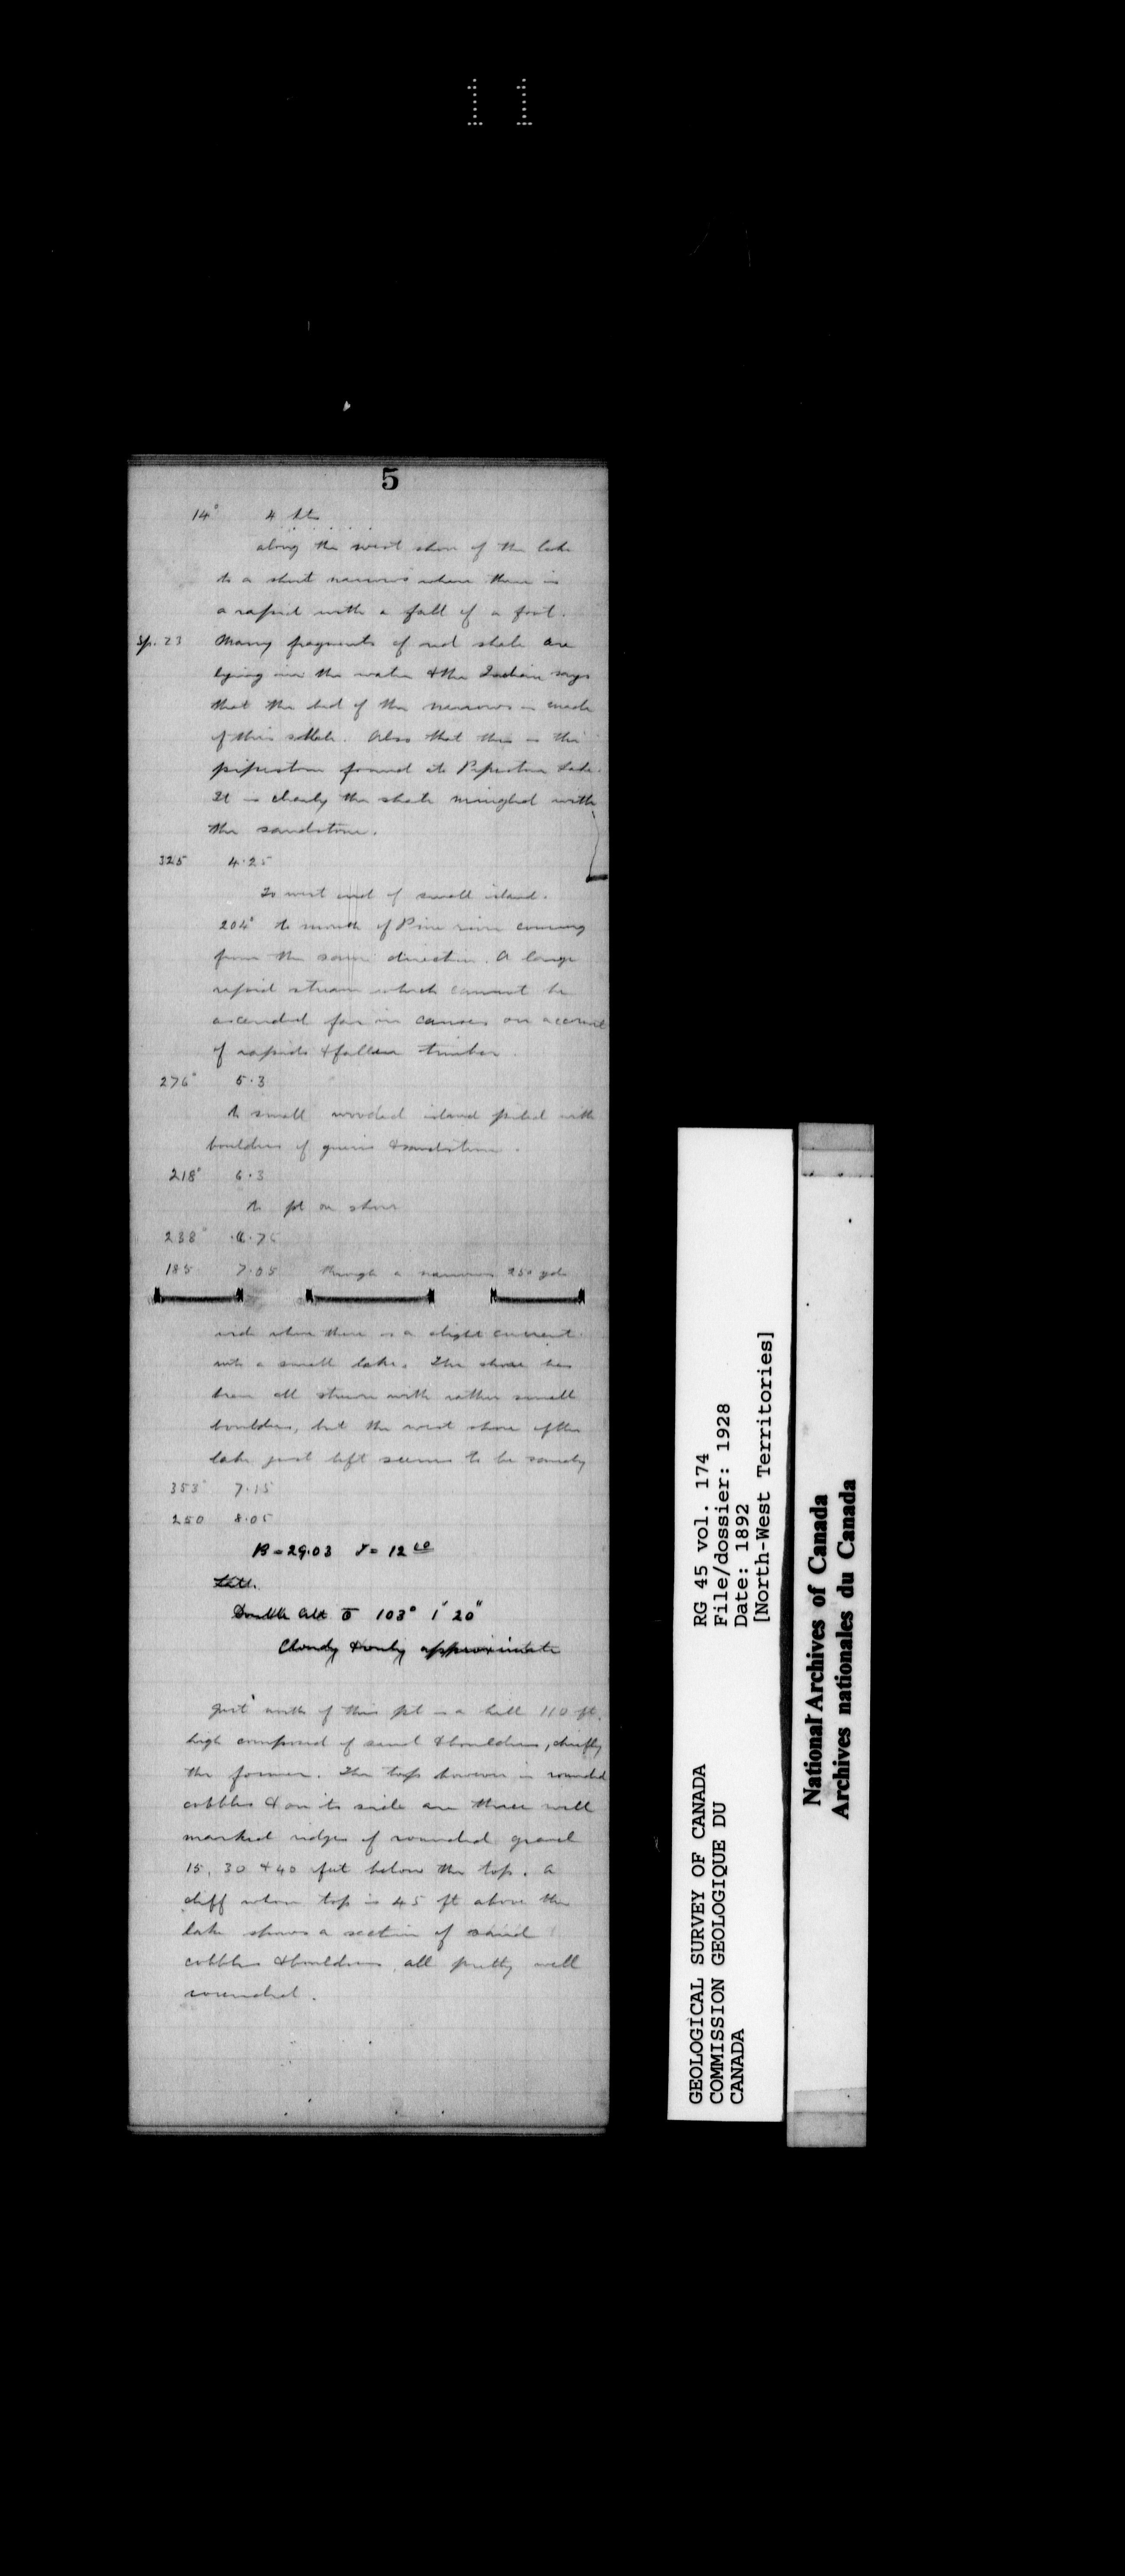 11
5
14° 4
along the west shore of the lake
to a short narrows where there is
a rapid with a fall of a foot.
Sp. 23 Many fragments of red shale are
lying in the water & the Indian says
that the bed of the narrows is made
of this shale. Also that this is the
pipestone found at Pipestone Lake.
It is clearly the shale mingled with
the sandstone.
325 4.25
To west end of small island.
204° to mouth of Pine river coming
from the same direction. A large
rapid stream which cannot be
ascended far in canoes on account
of rapids & fallen timber.
276° 5.3
to small wooded island piled with
boulders of gneiss & sandstone.
218° 6.3
to pt on shore
238° 6.75
185 7.05 through a narrows 250 yds
wide where there is a slight current
into a small lake. The shore has
been all strewn with rather small
boulders, but the west shore of the
lake just left seems to be sandy
353° 7.15
250 8.05
B = 29.03
Double Alt 103° 1' 20"
Cloudy & only approximate
Just north of this pt is a hill 110 ft.
high composed of sand & boulders, chiefly
the former. The top however is rounded
cobbles & on its side are three well
marked ridges of rounded gravel
15, 30 & 40 feet below the top. A
cliff whose top is 45 ft above the
lake shows a section of sand
cobbles & boulders, all pretty well
rounded.
GEOLOGICAL SURVEY OF CANADA
COMMISSION GEOLOGIQUE DU
CANADA
RG 45 vol. 174
File/dossier: 1928
Date: 1892
[North-West Territories]
National Archives of Canada
Archives nationales du Canada